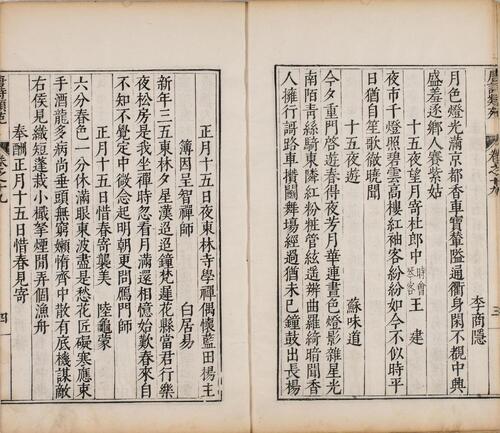 唐詩類苑 卷之十九 三
李商隱
月色燈光滿京都香車寶輦隘通衢身閑不覩中興
盛羞逐鄉人賽紫姑
十五夜望月寄杜郎中 時會琴客 王建
夜市千燈照碧雲高樓紅袖客紛紛如今不似時平
日猶自笙歌徹曉聞
十五夜遊 蘇味道
今夕重門啓遊春得夜芳月華連晝色燈影雜星光
南陌青絲騎東隣紅粉粧管絃遥辨曲羅綺暗聞香
人擁行謌路車攢鬬舞場經過猶未已鐘鼓出長楊
正月十五日夜東林寺學禪偶懷藍田楊主
簿因呈智禪師 白居易
新年三五東林夕星漢迢迢鐘梵遲花縣當君行樂
夜松房是我坐禪時忽看月滿還相憶始歎春來自
不知不覺定中微念起明朝更問鴈門師
正月十五日惜春寄襲美 陸龜蒙
六分春色一分休滿眼東波盡是愁花匠礙寒應束
手酒龍多病尚垂頭無窮嬾惰齊中散有底機謀敵
右侯見織短蓬裁小檝拏煙閒弄個漁舟
奉酬正月十五日惜春見寄
唐詩類苑 卷之十九 四